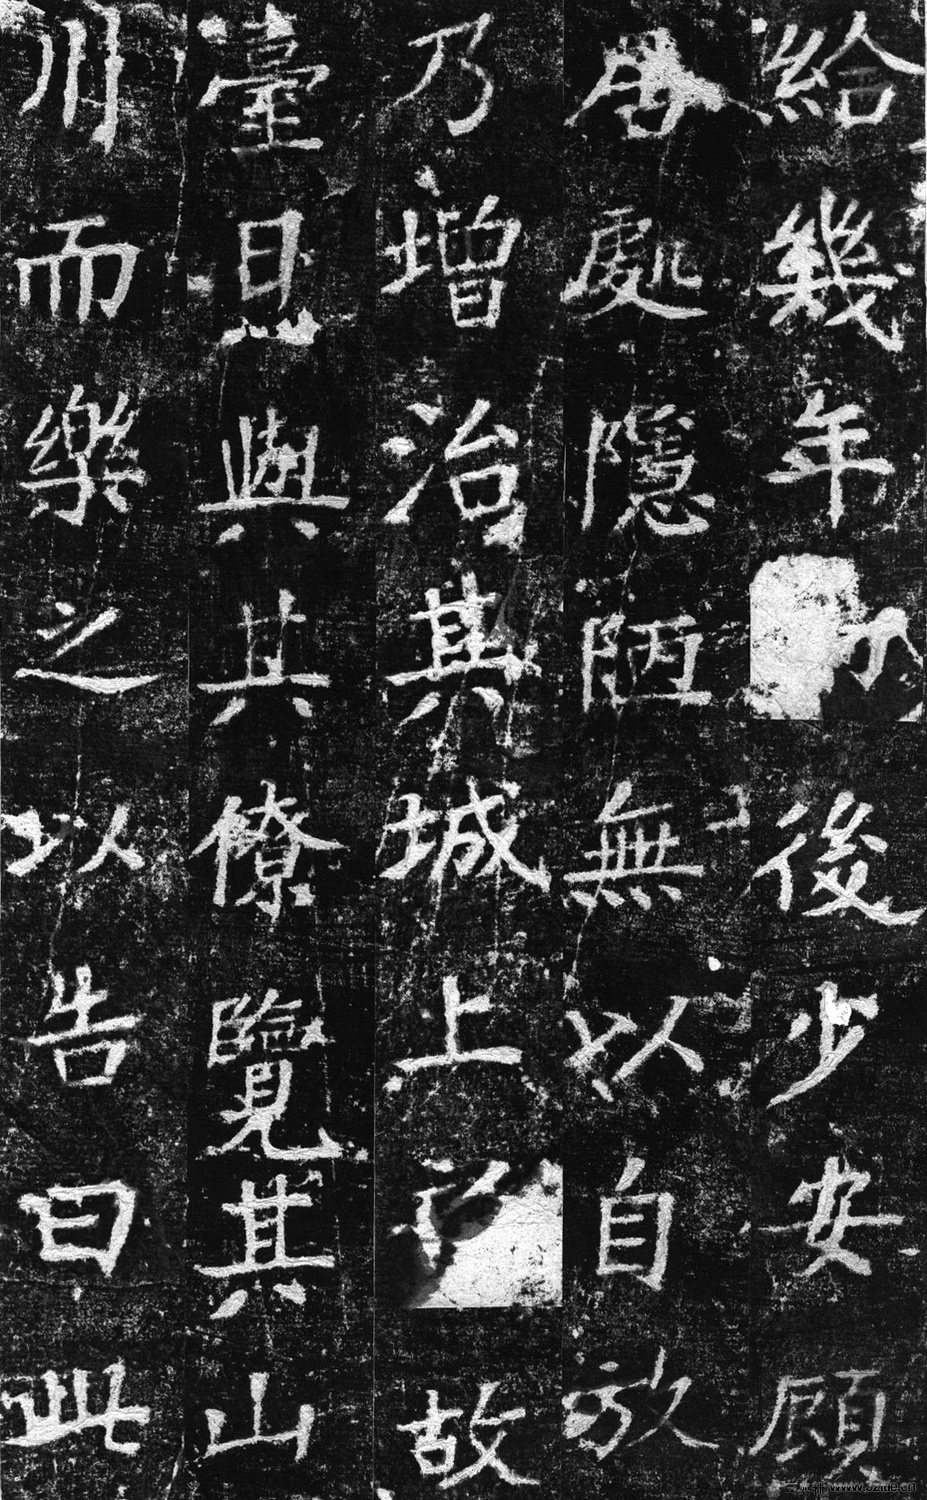 給幾年後少安顧
處隱陋無以自放
乃增治其城上故
臺日與其僚覽其山
川而樂之以告曰此